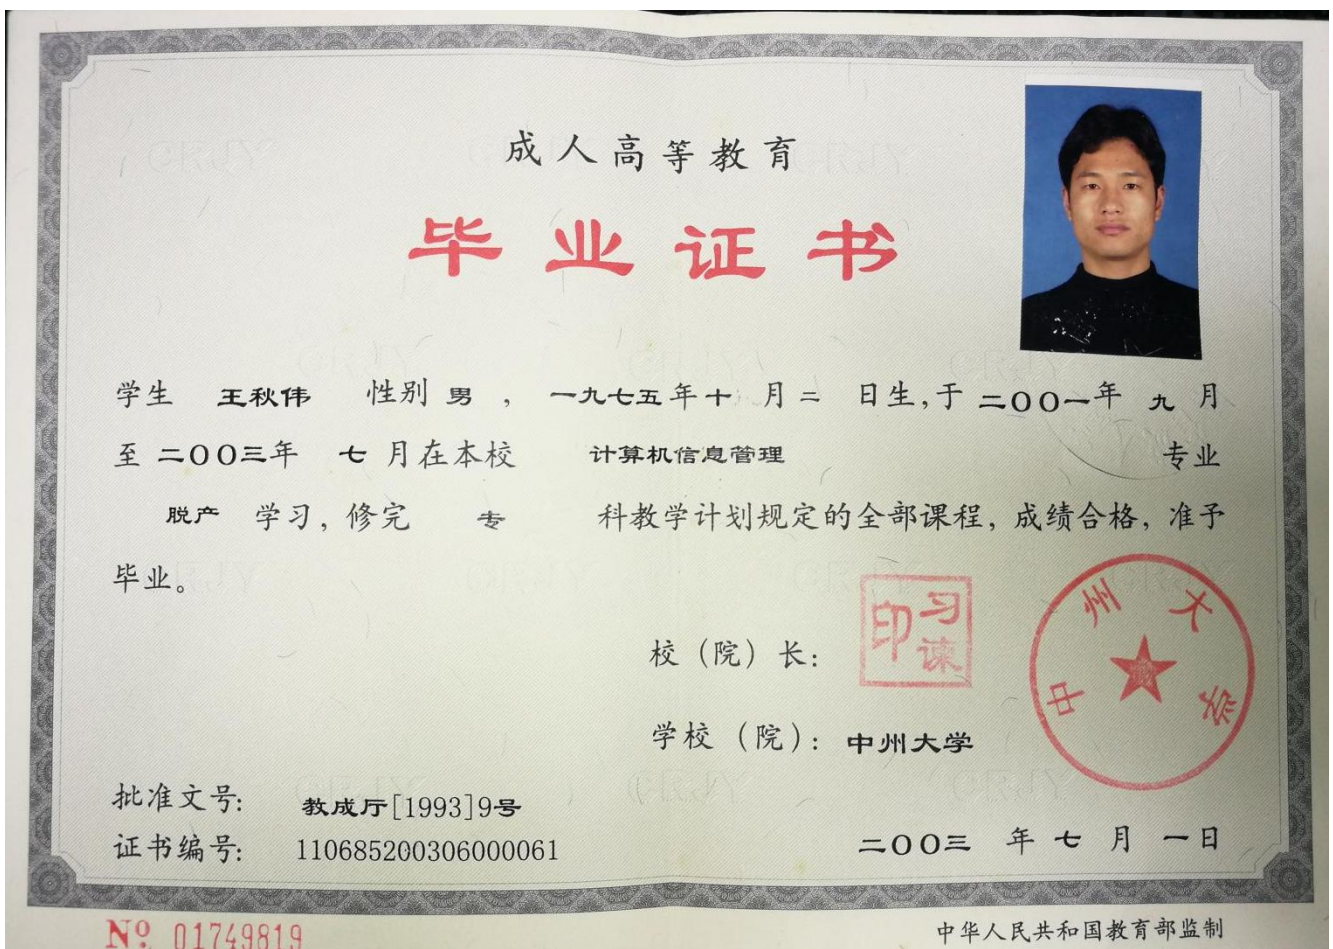 成人高等教育
毕业证书
学生 王秋伟 性别 男 , 一九七五年十 月二 日生,于 二OO一年 九 月
至 二OO三年 七 月在本校 计算机信息管理 专业
脱产 学习, 修完 专 科教学计划规定的全部课程, 成绩合格, 准予
毕业。
校（院）长: 习谏印
中州大学
学校（院）: 中州大学
批准文号: 教成厅[1993]9号
证书编号: 110685200306000061
二OO三 年 七 月 一日
№ 01749819
中华人民共和国教育部监制